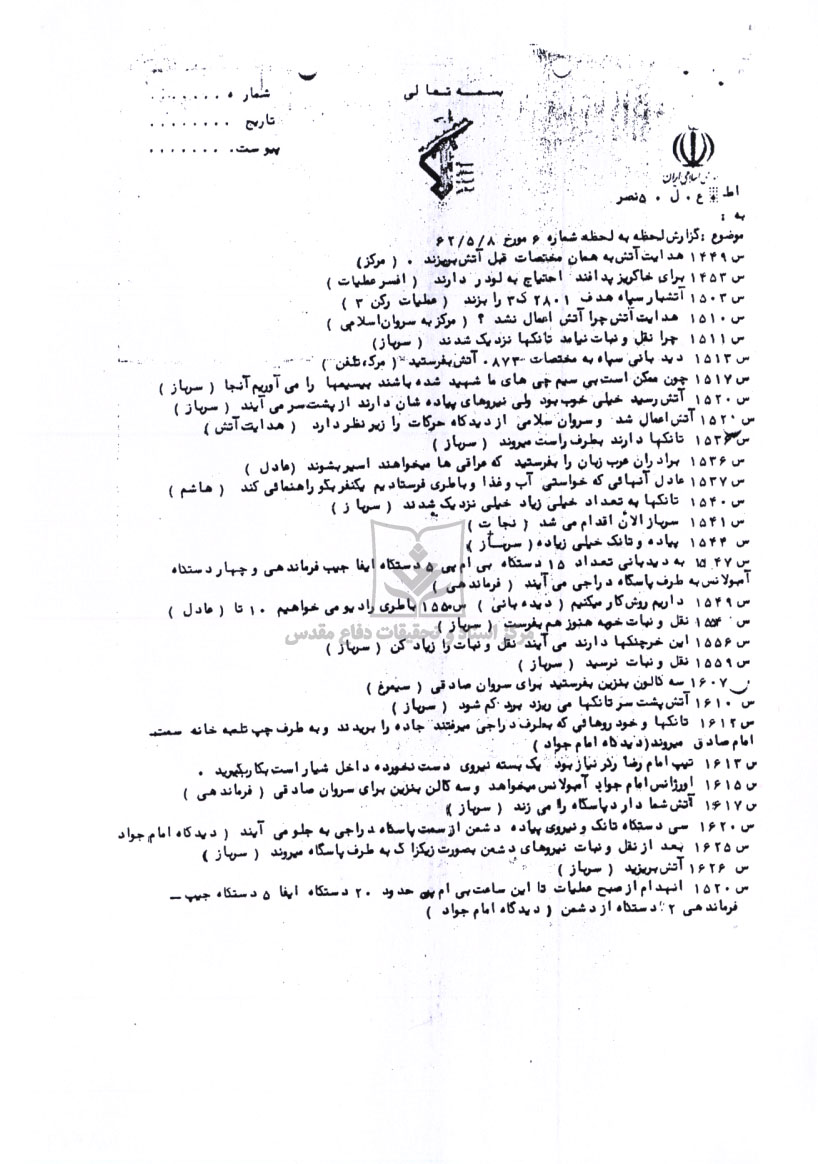 بسمه تعالی
شماره .......
تاریخ ........
پیوست. .......
اسلامی ایران
اط ع . ل . ۵ نصر
به :
موضوع : گزارش لحظه به لحظه شماره ۶ مورخ ۶۲/۵/۸
س ۱۴۴۹ هدایت آتش به همان مختصات قبل آتش بریزند . ( مرکز)
س ۱۴۵۳ برای خاکریز پدافند احتیاج به لودر دارند ( افسر عملیات )
س ۱۵۰۳ آتشبار سپاه هدف ۲۸۰۱ ک ۳ را بزند ( عملیات رکن ۳ )
س ۱۵۱۰ هدایت آتش چرا آتش اعمال نشد ؟ ( مرکز به سروان اسلامی )
س ۱۵۱۱ چرا نقل و نبات نیامد تانکها نزدیک شدند ( سرباز)
س ۱۵۱۳ دید بانی سپاه به مختصات ۰۸۷۳ آتش بفرستید ( مرکز تلفن )
س ۱۵۱۷ چون ممکن است بی سیم چی های ما شهید شده باشند بیسیمها را می آوریم آنجا ( سرباز )
س ۱۵۲۰ آتش رسید خیلی خوب بود ولی نیروهای پیاده شان دارند از پشت سر می آیند ( سرباز )
س ۱۵۲۰ آتش اعمال شد و سروان سلامی از دیدگاه حرکات را زیر نظر دارد ( هدایت آتش )
س ۱۵۳۶ تانکها دارند بطرف راست میروند ( سرباز )
س ۱۵۳۶ برادران عرب زبان را بفرستید که عراقی ها میخواهند اسیر بشوند (عادل )
س ۱۵۳۷ عادل آنهائی که خواستی آب و غذا و باطری فرستادیم یکنفر بگو راهنمائی کند ( هاشم )
س ۱۵۴۰ تانکها به تعداد خیلی زیاد خیلی نزدیک شدند ( سرباز )
س ۱۵۴۱ سرباز الان اقدام می شد ( نجات )
س ۱۵۴۴ پیاده و تانک خیلی زیاده ( سرباز )
س ۱۵۴۷ به دیدبانی تعداد ۱۵ دستگاه بی ام پی ۵ دستگاه ایفا جیپ فرماندهی و چهار دستگاه
آمبولانس به طرف پاسگاه دراجی می آیند ( فرماندهی )
س ۱۵۴۹ داریم روش کار میکنیم ( دیده بانی ) س ۱۵۵۰ باطری رادیو می خواهیم ۱۰ تا ( عادل )
س ۱۵۵۴ نقل و نبات خوبه هنوز هم بفرست ( سرباز )
س ۱۵۵۶ این خرچنگها دارند می آیند نقل و نبات را زیاد کن ( سرباز )
س ۱۵۵۹ نقل و نبات نرسید ( سرباز )
س ۱۶۰۷ سه گالون بنزین بفرستید برای سروان صادقی ( سیمرغ )
س ۱۶۱۰ آتش پشت سر تانکها می ریزد برد کم شود ( سرباز )
س ۱۶۱۲ تانکها و خودروهائی که بطرف دراجی میرفتند جاده را بریدند و به طرف چپ تلمبه خانه سمت
امام صادق میروند (دیدگاه امام جواد )
س ۱۶۱۳ تیپ امام رضا رکز نیاز بود یک بسته نیروی دست نخورده داخل شیار است بکار بگیرید .
س ۱۶۱۵ اورژانس امام جواد آمبولانس میخواهد و سه گالن بنزین برای سروان صادقی ( فرماندهی )
س ۱۶۱۷ آتش شما دارد پاسگاه را می زند ( سرباز )
س ۱۶۲۰ سی دستگاه تانک و نیروی پیاده دشمن از سمت پاسگاه دراجی به جلو می آیند ( دیدگاه امام جواد
س ۱۶۲۵ بعد از نقل و نبات نیروهای دشمن بصورت زیگزاگ به طرف پاسگاه میروند ( سرباز )
س ۱۶۲۶ آتش بریزید ( سرباز )
س ۱۵۲۰ انهدام از صبح عملیات تا این ساعت بی ام پی حدود ۲۰ دستگاه ایفا ۵ دستگاه جیپ —
فرماندهی ۲ دستگاه از دشمن ( دیدگاه امام جواد )
مرکز اسناد و تحقیقات دفاع مقدس